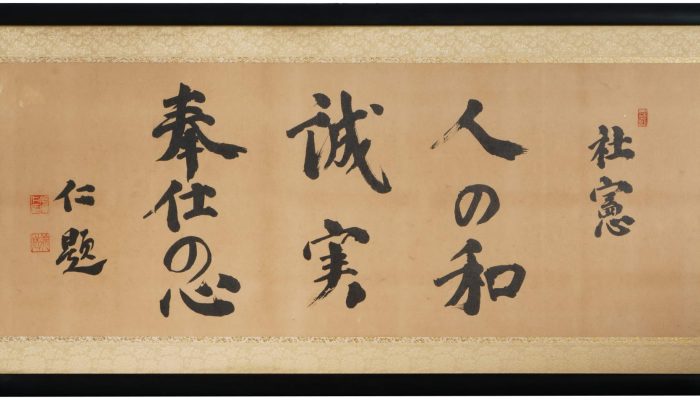 社憲
人の和
誠実
奉仕の心
仁題